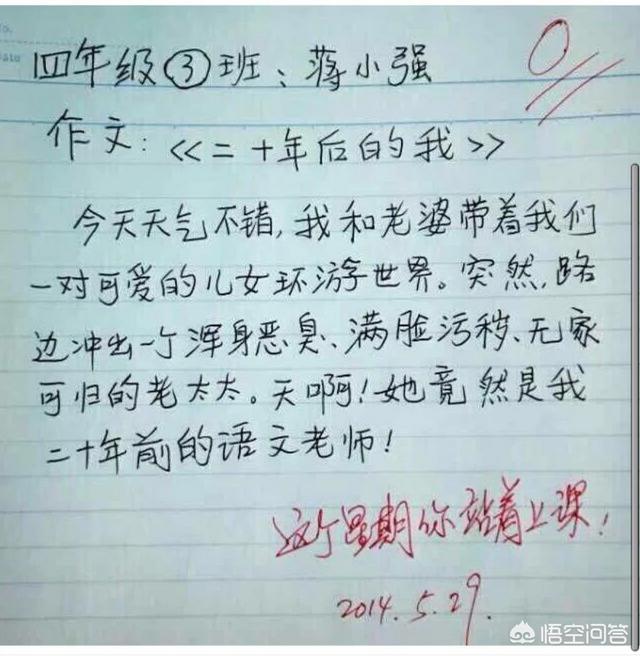 四年级③班：蒋小强
0
作文：《二十年后的我》
今天天气不错，我和老婆带着我们
一对可爱的儿女环游世界。突然，路
边冲出一个浑身恶臭、满脸污秽、无家
可归的老太太。天啊！她竟然是我
二十年前的语文老师！
这个星期你站着上课！
2014.5.29.
悟空问答